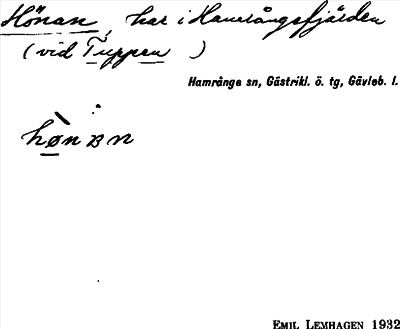 Hönan, har i Hamrångefjärden
(vid Tuppen )
Hamrånge sn, Gästrikl. ö. tg, Gävleb. l.
hø̀nan
EMIL LEMHAGEN 1932